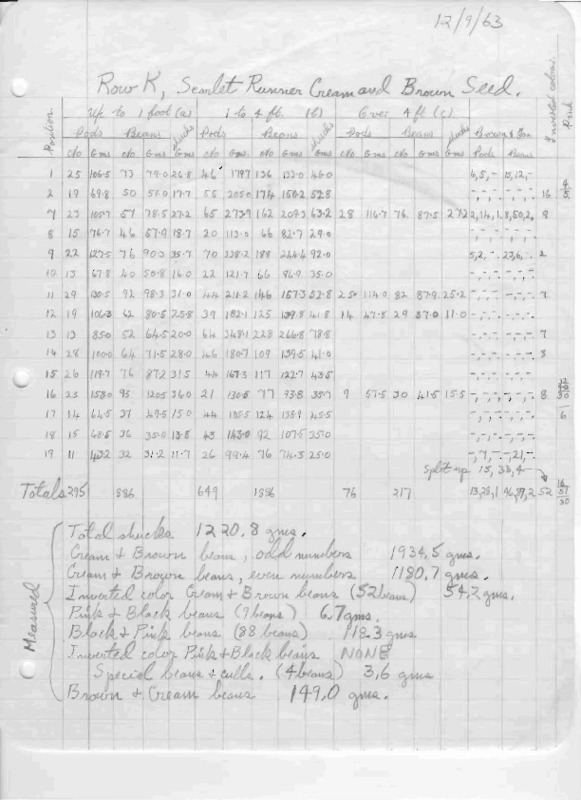 12/9/63
Row K, Scarlet Runner Cream and Brown Seed.
Up to 1 foot (a) 1 to 4 ft. (b) Over 4 ft (c) Inverted colors Pink
Position Pods Beans shucks Pods Beans shucks Pods Beans shucks Brown & Cream
No Gms No Gms Gms No Gms No Gms Gms No Gms No Gms Gms Pods Beans
1 25 106.5 73 79.0 26.8 46 179.7 136 132.0 46.0
2 19 69.8 50 51.0 17.7 55 205.0 174 150.2 52.8 16
7 23 105.7 57 78.5 27.2 65 273.9 162 209.3 63.2 28 116.7 76 87.5 27.2 2,14,1,8,50,2, 8
8 15 76.7 46 57.9 18.7 20 113.0 66 82.7 29.0
9 22 127.5 76 90.3 35.7 70 338.2 188 244.6 92.0 5,2,-.23,6,-. 2
10 13 67.8 40 50.8 16.0 22 121.7 66 86.9 35.0
11 29 130.5 92 98.3 31.0 44 211.2 146 157.3 52.8 25 114.0 82 87.9 25.2 7
12 19 106.3 62 80.5 25.8 39 182.1 125 139.8 41.8 14 47.5 29 37.0 11.0
13 13 85.0 52 64.5 20.0 64 348.1 228 266.8 78.8 7
14 28 100.0 64 71.5 28.0 46 180.7 109 139.5 41.0 3
15 26 119.7 76 87.2 31.5 44 167.3 117 122.7 43.5
16 23 158.0 95 120.5 36.0 21 130.5 77 93.8 35.7 9 57.5 30 41.5 15.5 8
17 14 64.5 37 49.5 15.0 44 135.5 124 138.9 45.5 6
18 15 68.5 36 35.0 13.8 43 143.0 92 107.5 35.0
19 11 43.2 32 31.2 11.7 26 99.4 76 74.3 25.0 -,7,-.-21,-.
Split up 13, 33, 4
Totals 295 886 649 1886 76 217 52
Measured
Total shucks 1220.8 gms.
Cream & Brown beans, odd numbers 1934.5 gms.
Cream & Brown beans, even numbers 1180.7 gms.
Inverted color Cream & Brown beans (52 beans) 54.2 gms.
Pink & Black beans (9 beans) 6.7 gms.
Black & Pink beans (88 beans) 112.3 gms
Inverted color Pink & Black beans NONE
Special beans & culls. (4 beans) 3.6 gms
Brown & Cream beans 149.0 gms.